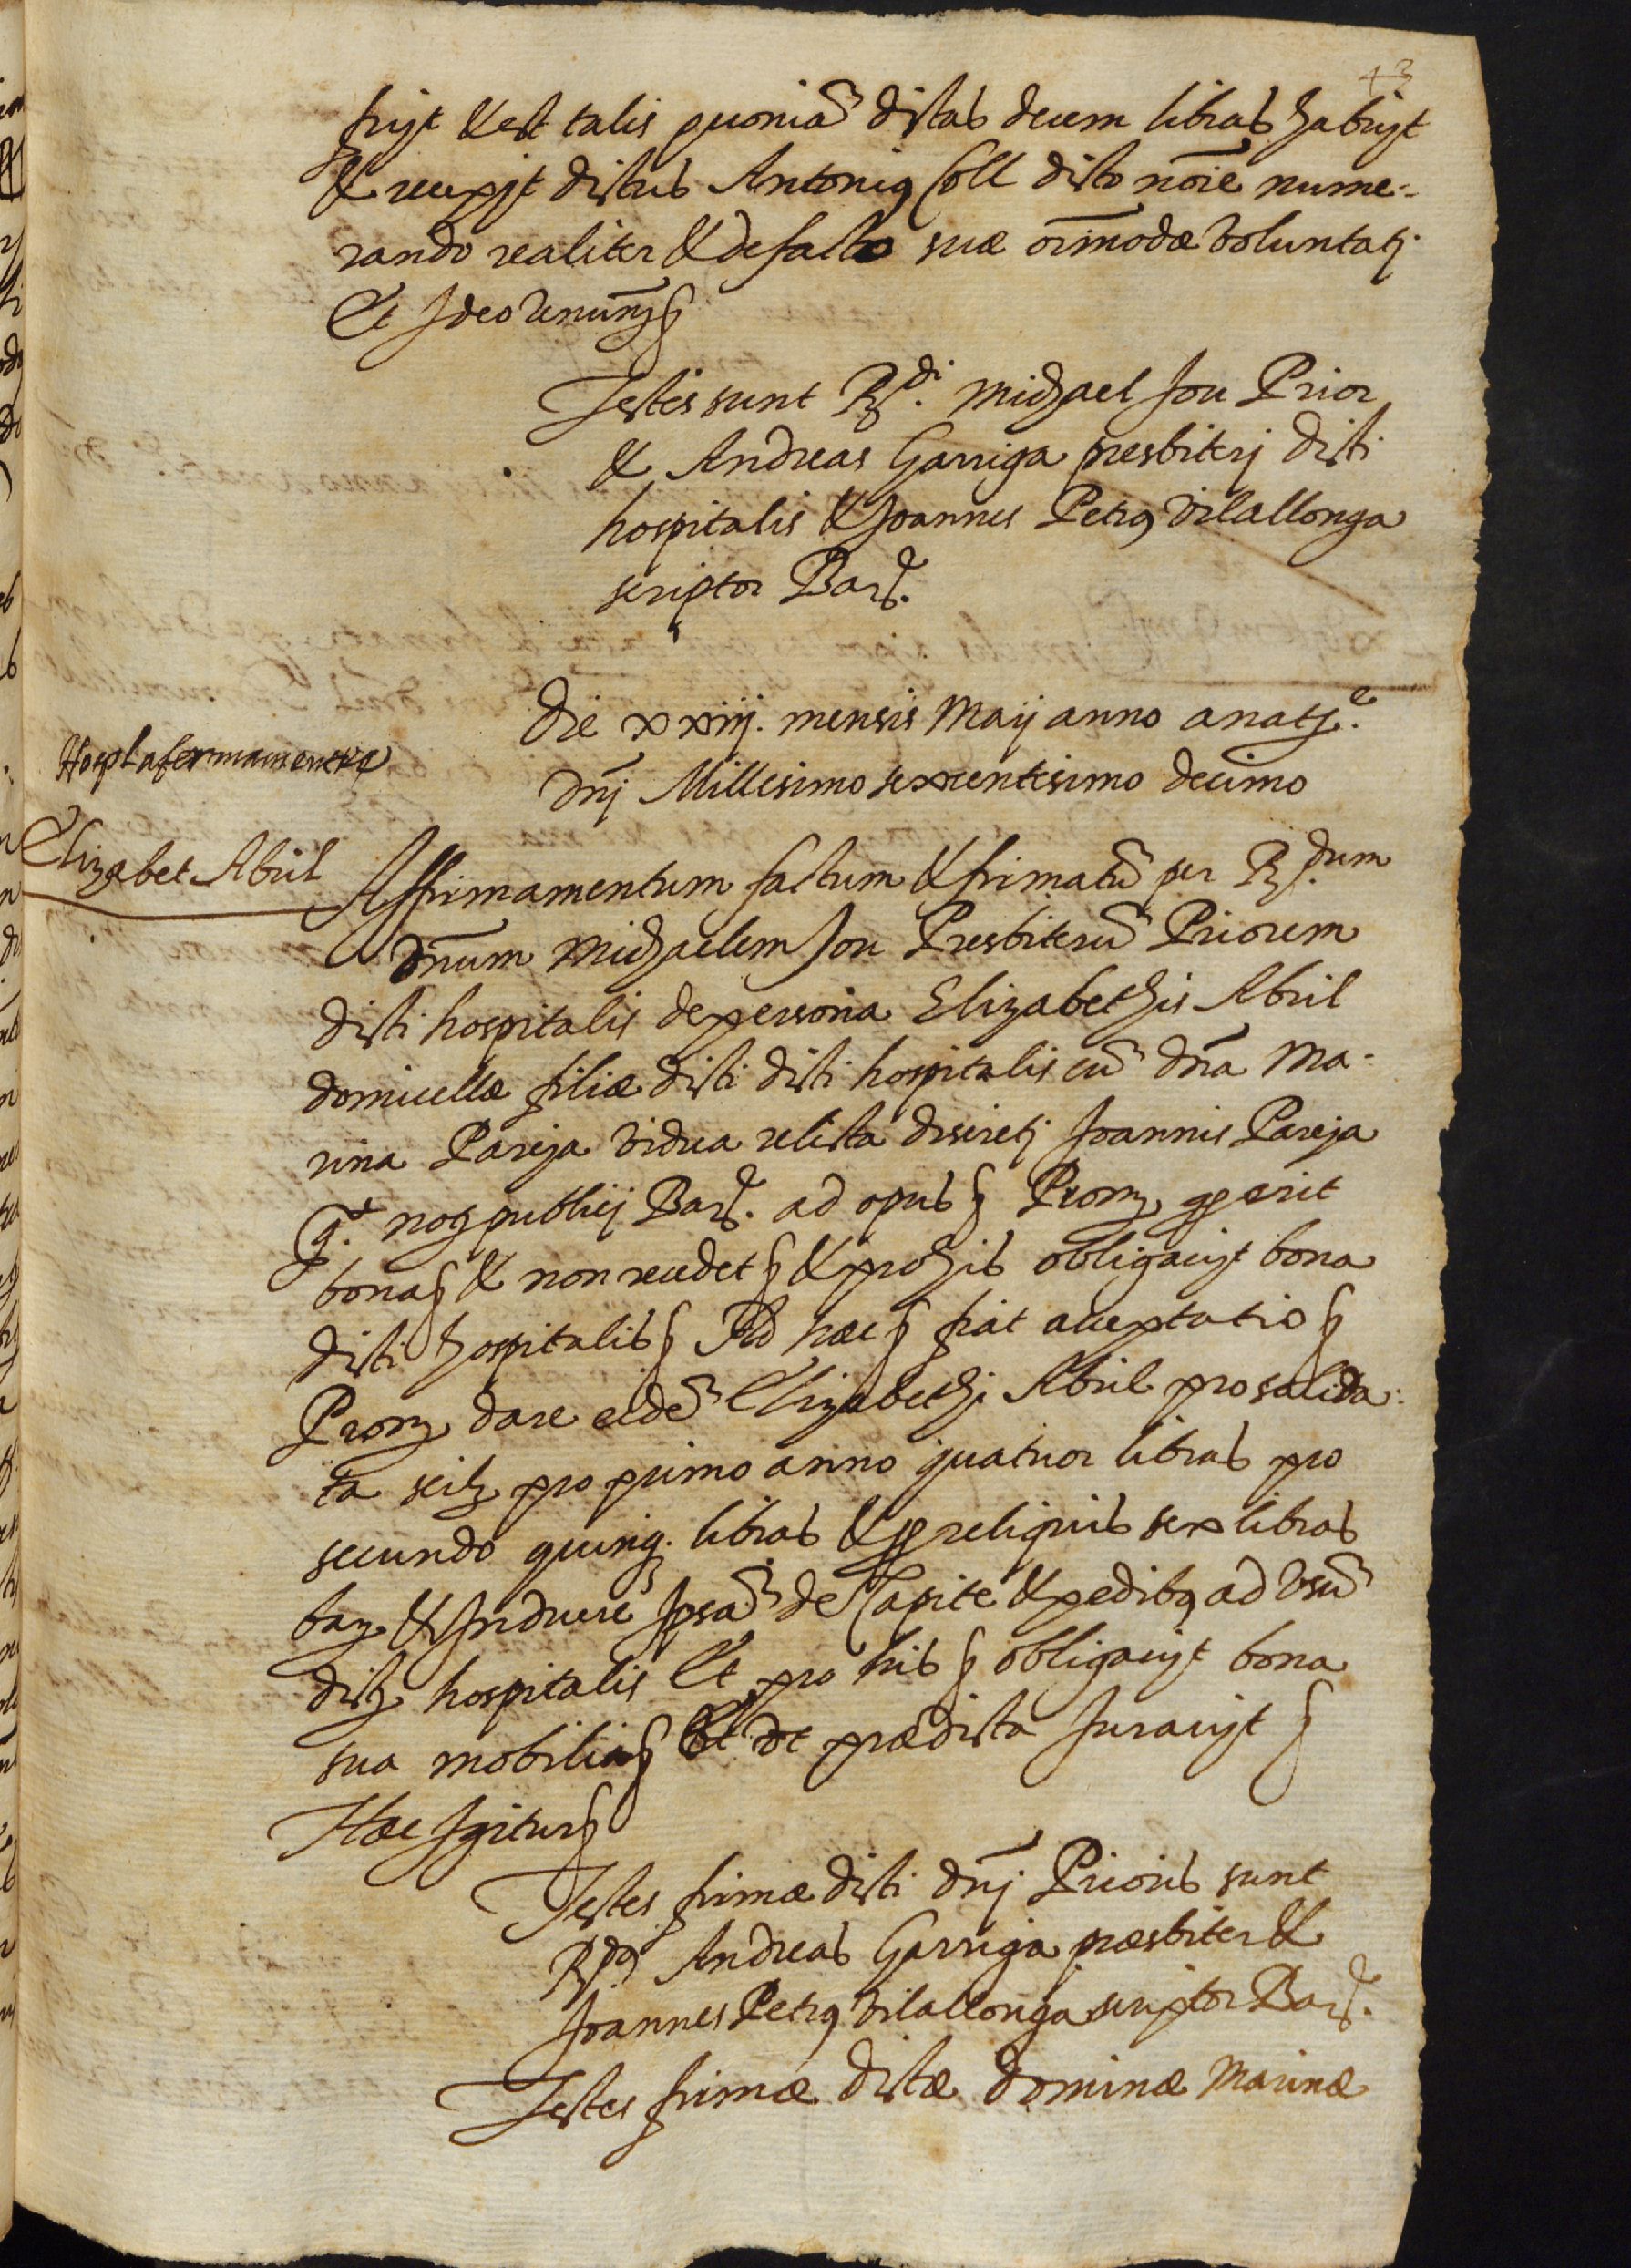 43
fuit & est talis quoniã dictas decem libras habuit
& recepit dictus Antoniꝰ Coll dicto noĩe nume-
rando realiter & de facto suæ oĩmodæ voluntatj
Et Ideo renuñ §
Testes sunt Rdi. Michael Jou Prior
& Andreas Garriga presbiterj dicti
hospitalis & Joannes Petrꝰ Vilallonga
scriptor Barꝰ.
Die xxiiij. mensis Maij anno a natte.
Dñj Millesimo sexcentesimo decimo
Hospl afermament
Elizabet Abril
Affirmamentum factum & firmatũ per Rdum
Dñum Michaelem Jou Presbiterũ Priorem
dicti hospitalis de persona Elizabethis Abril
domicellæ filiæ dicti dicti hospitalis cũ dña Ma-
rina Pareja vidua relicta discretj Joannis Pareja
qº. noꝰ publicj Barꝰ. ad opus § Promꝫ qꝫ erit
bona § & non recedet § & pro his obligavit bona
dicti hospitalis § Ad hæc § fiat acceptatio §
Promꝫ dare eidẽ Elizabethj Abril pro salida-
ta scilꝫ pro primo anno quatuor libras pro
secundo quinqꝫ. libras & pro reliquis sex libras
barꝫ & Induere Ipsã de Capite & pedibꝰ ad usũ
dictꝫ hospitalis Et pro his § obligavit bona
sua mobilia § Et ut prædicta Juravit §
Hæc Igitur §
Testes firmæ dicti dñj Prioris sunt
Rdꝰ Andreas Garriga præsbiter &
Joannes Petrꝰ Vilallonga scriptor Barꝰ.
Testes firmæ dictæ dominæ Marinæ